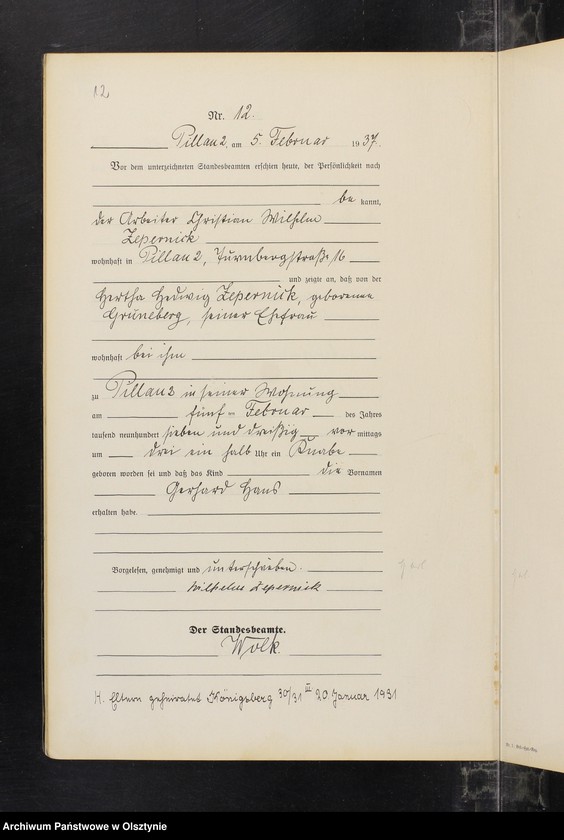 12.
Nr. 12.
Pillau 2, am 5. Februar 1937.
Vor dem unterzeichneten Standesbeamten erschien heute, der Persönlichkeit nach
be kannt,
der Arbeiter Christian Wilhelm
Zepernick
wohnhaft in Pillau 2, Turnbergstraße 16
und zeigte an, daß von der
Hertha Hedwig Zepernick, geborenen
Grüneberg, seiner Ehefrau
wohnhaft bei ihm
zu Pillau 2 in seiner Wohnung
am fünf ten Februar des Jahres
tausend neunhundert sieben und dreißig vor mittags
um drei ein halb Uhr ein Knabe
geboren worden sei und daß das Kind die Vornamen
Gerhard Hans
erhalten habe.
Vorgelesen, genehmigt und unterschrieben.
Wilhelm Zepernick
Der Standesbeamte.
Wolk.
H. Eltern geheiratet Königsberg 30/31 III 20. Januar 1931
Archiwum Państwowe w Olsztynie